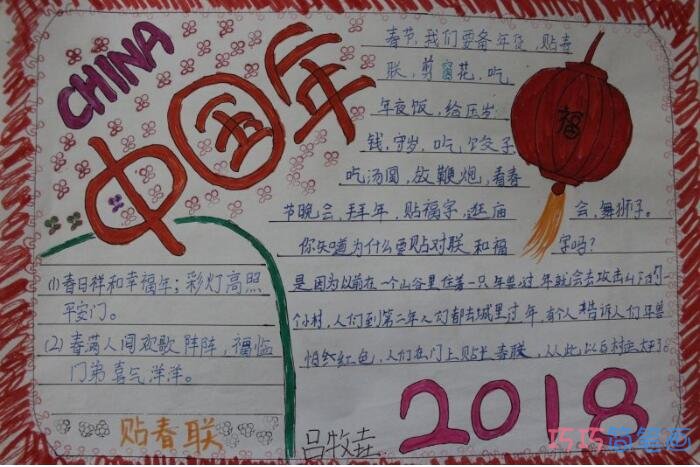 CHINA
中国年
春节,我们要备年货,贴春
联,剪窗花,吃
年夜饭,给压岁
钱,守岁,吃饺子
吃汤圆,放鞭炮,看春
节晚会,拜年,贴福字,逛庙会,舞狮子。
你知道为什么要贴对联和福字吗?
是因为以前在一个山谷里住着一只年兽过年就会去攻击山下的
个小村,人们到第二年人们都去城里过年,有个人告诉人们年兽
怕红色,人们在门上贴上春联,从此以后村
福
(1)春日祥和幸福年;彩灯高照
平安门。
(2)春满人间欢歌阵阵,福临
门第喜气洋洋。
贴春联
吕牧垚
2018
巧巧简笔画